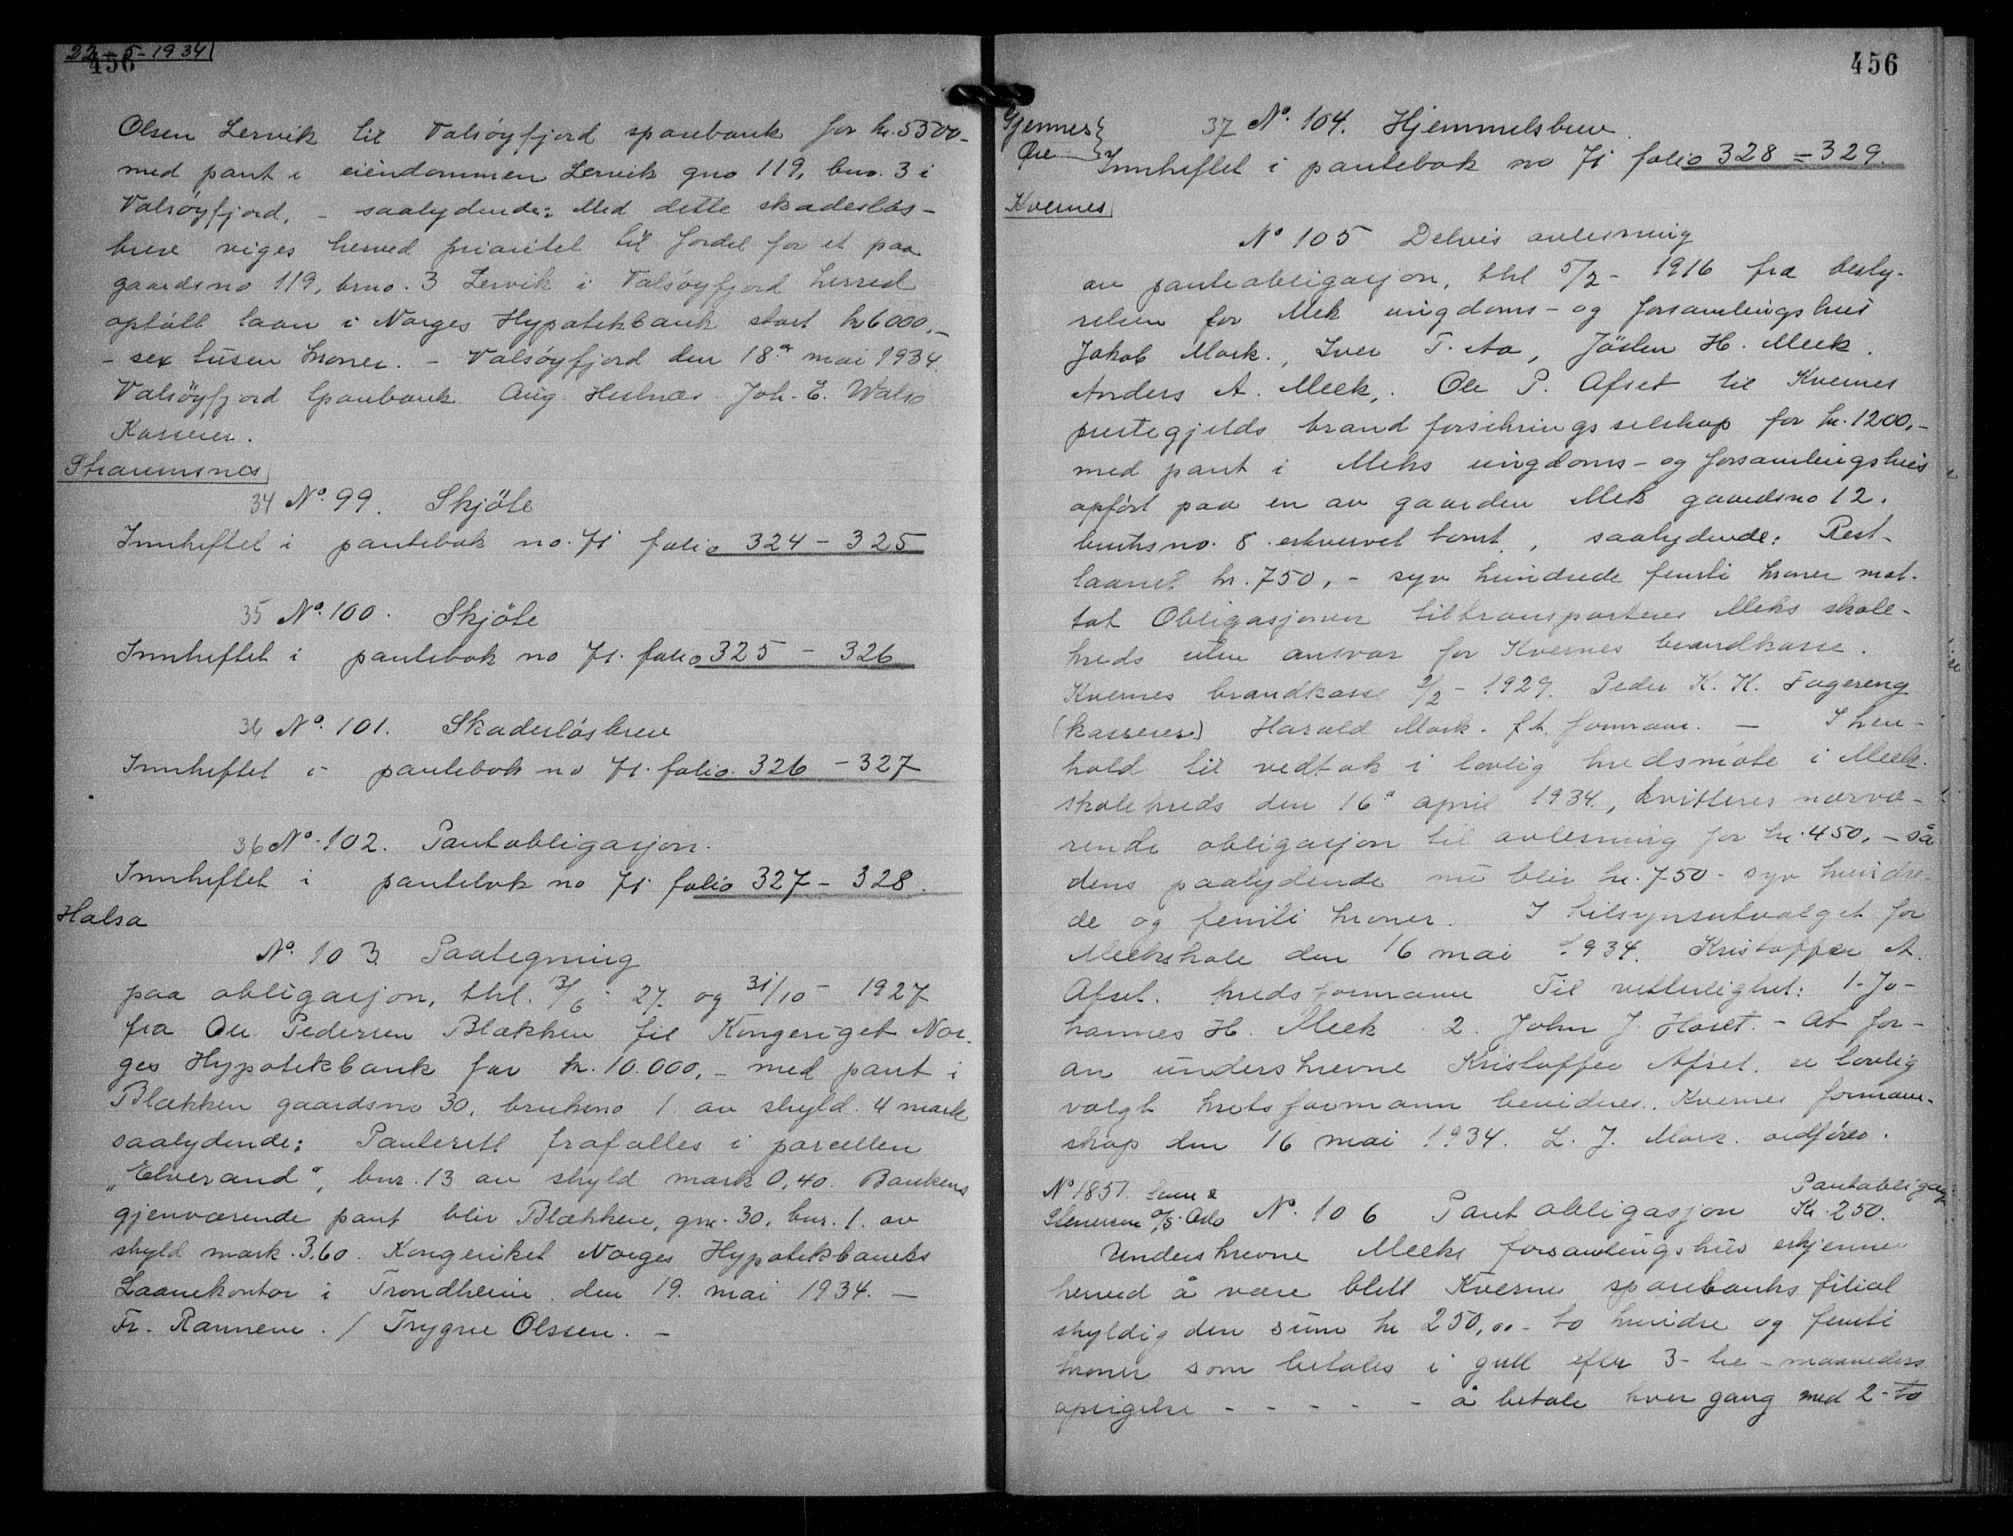 22-5-1934
456
Olsen Lervik til Valsøyfjord sparebank for kr. 5500-
med pant i eiendommen Lervik gno 119, bno. 3 i
Valsøyfjord, - saalydende: Med dette skadesløs-
brev viges herved prioritet til fordel for et paa
gaardsno 119, brno. 3 Lervik i Valsøyfjord herred
optatt laan i Norges Hypotekbank stort kr 6000,-
- sex tusen kroner. - Valsøyfjord den 18de mai 1934.
Valsøyfjord Sparebank. Aug. Hestnæs. Joh. E. Walsø
Kasserer.
Straumsnes
34 No. 99. Skjöte
Innheftet i pantebok no. 71 folio 324 - 325
35 No. 100. Skjöte
Innheftet i pantebok no 71. folio 325 - 326
36 No. 101. Skadesløsbrev
Innheftet i pantebok no 71. folio. 326 - 327
36 No. 102. Pantobligasjon.
Innheftet i pantebok no 71 folio 327 - 328.
Halsa
No. 103. Paategning
paa obligasjon, thl. 3/6 - 27. og 31/10 - 1927
fra Ole Pedersen Blækken til Kongeriget Nor-
ges Hypotekbank for kr. 10.000,- med pant i
Blækken gaardsno 30, bruksno 1 av skyld. 4 mark
saalydende: Panterett frafalles i parcellen
„Elverand", bnr. 13 av skyld mark 0,40. Bankens
gjenværende pant blir Blækken, gnr. 30, bnr. 1. av
skyld mark. 3,60. Kongeriket Norges Hypotekbanks
Laanekontor i Trondheim. den 19. mai 1934. -
Fr. Rannem. / Trygve Olssen. -
456
Gjemnes
Øre
37 No. 104. Hjemmelsbrev.
Innheftet i pantebok no 71 folio 328 - 329.
Kvernes
No 105 Delvis avlesning
av panteobligasjon, thl 5/2 - 1916 fra besty-
relsen for Mek ungdoms- og forsamlingshus
Jakob Mork., Iver T. Aa, Jöslen H. Meek.
Anders A. Meek,. Ole P. Afset til Kvernes
prestegjelds brand forsikrings selskap for kr. 1200,-
med pant i Meks ungdoms- og forsamlingshus
opfört paa en av gaarden Mek gaardsno 12.
bruksno. 8. erhvervet tomt, saalydende: Rest-
laanet kr. 750,- syv hundrede femti kroner mot-
tat Obligasjonen tiltransporteres Meks skole-
kreds uten ansvar for Kvernes brandkasse.
Kvernes brandkasse 2/2 - 1929. Peder K. K. Fagereng
(kasserer) Harald Mork. f.h. formann. - I hen-
hold til vedtak i lovlig kredsmøte i Meek
skolekreds den 16de april 1934, kvitteres nærvæ-
rende obligasjon til avlesning for kr. 450,- så
dens paalydende nu blir kr. 750- syv hundre-
de og femti kroner. I tilsynsutvalget for
Meekskole den 16 mai 1934. Kristoffer A.
Afset. kredsformann Til vitterlighet: 1. Jo-
hannes H. Meek 2. John J. Hoset. - At for-
an underskrevne Kristoffer Afset. er lovlig
valgt kretsformann bevidnes. Kvernes formann-
skap den 16 mai 1934. L. J. Mork. ordfører.
No 1851.
Stenersen a/s. Oslo No. 106 Pantobligasjon Kr. 250.
Pantobligasj
Underskrevne Meeks forsamlingshus erkjenner
herved å være blitt Kverne sparebanks filial
skyldig den sum kr 250,00 - to hundre og femti
kroner som betales i gull efter 3 - tre - maaneders
opsigelse - - - - - å betale hver gang med 2 - to